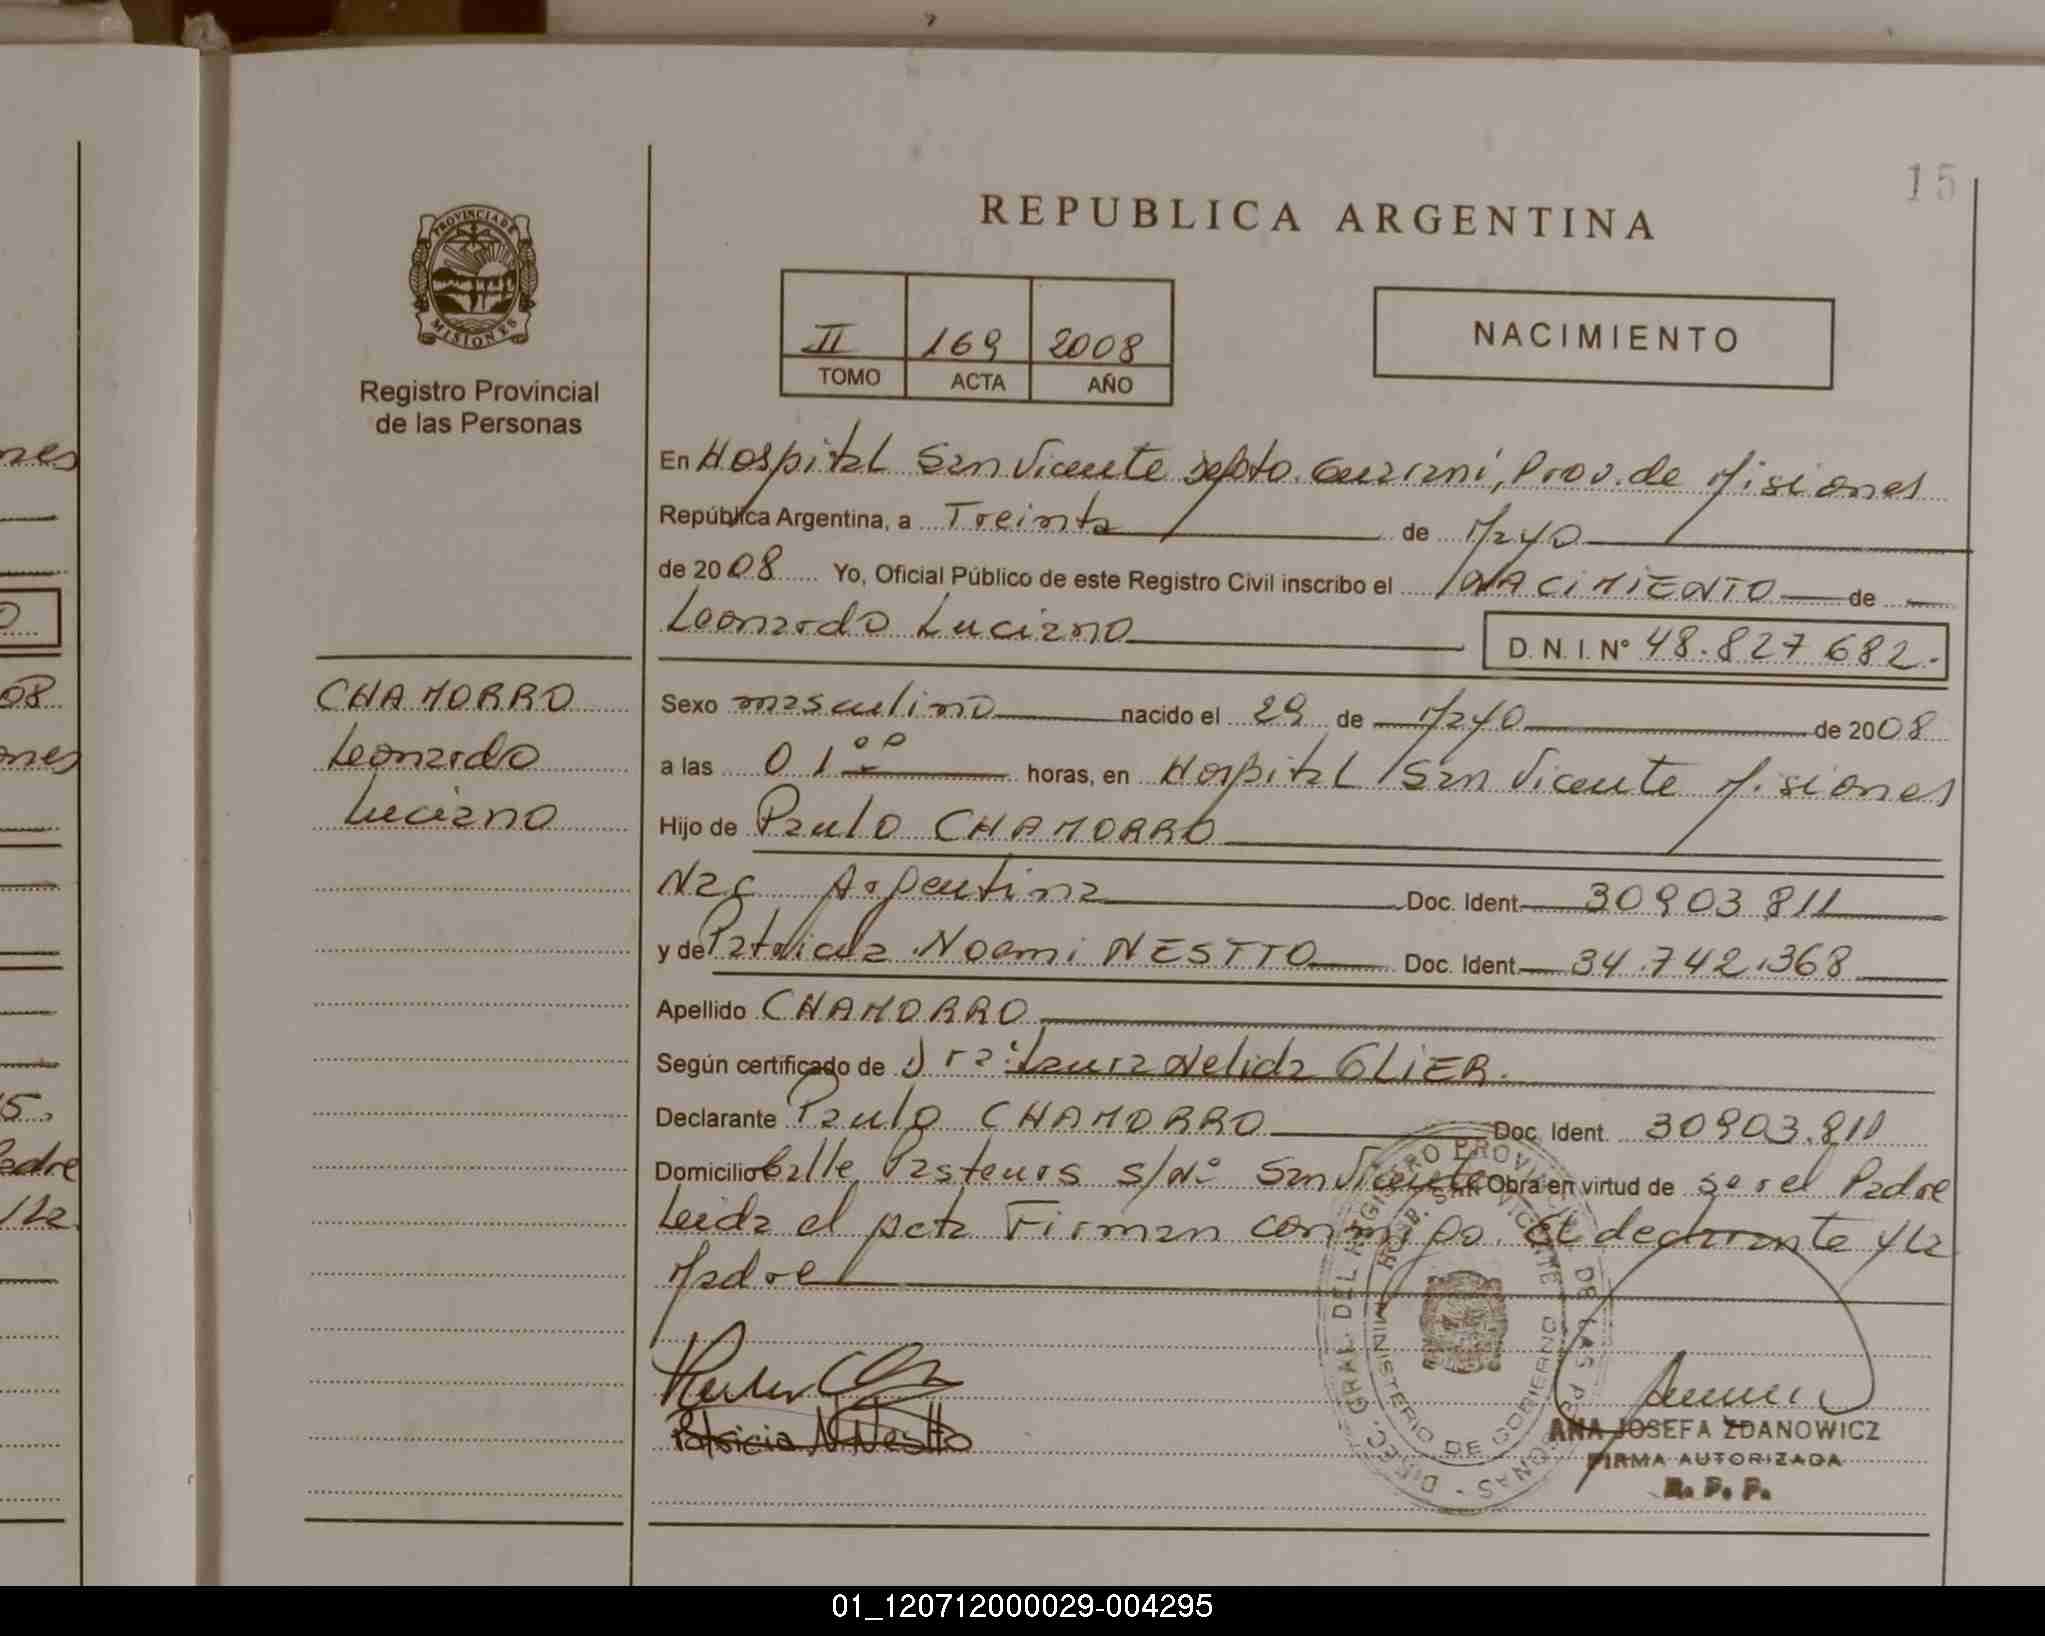 15
REPUBLICA ARGENTINA
PROVINCIA DE
MISIONES
Registro Provincial
de las Personas
II 169 2008
TOMO ACTA AÑO
NACIMIENTO
En Hospital San Vicente Depto. Guarani, Prov. de Misiones
República Argentina, a Treinta de Mayo
de 2008 Yo, Oficial Público de este Registro Civil inscribo el NACIMIENTO de
Leonardo Luciano D. N. I. Nº 48.827682.
CHAMORRO
Leonardo
Luciano
Sexo masculino nacido el 29 de Mayo de 2008
a las 01 00 horas, en Hospital San Vicente Misiones
Hijo de Paulo CHAMORRO
Nac Argentina Doc. Ident. 30903811
y de Patricia Noemi NESTTO Doc. Ident. 34.742.368
Apellido CHAMORRO
Según certificado de Dra: Laura Nelida GLIER.
Declarante Paulo CHAMORRO Doc. Ident. 30903.811
Domicilio Calle Pasteurs s/Nº San Vicente Obra en virtud de ser el Padre
Leida el acta Firman conmigo. El declarante y la
Madre
Patricia N Nestto
DIREC. GRAL. DEL REGISTRO PROVINCIAL DE LAS PERSONAS
MINISTERIO DE GOBIERNO
SAN VICENTE
ANA JOSEFA ZDANOWICZ
FIRMA AUTORIZADA
R. P. P.
nes
08
ones
5.
Padre
la
01_120712000029-004295